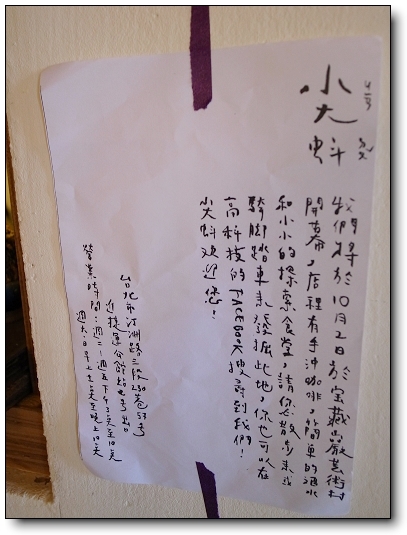 尖蚪
我們將於10月2日於宝藏巖芸術村
開幕，店裡有手沖咖啡，簡單的酒水
和小小的探索食堂，請你散步來或
騎腳踏車來發掘此地，你也可以在
高科技的FACEBOOK搜尋到我們！
尖蚪欢迎您！
台北市汀洲路三段230巷57号
近捷運公館站
營業時間：週二～週五下午3点至10点
週六．日早上十一点至晚上10点